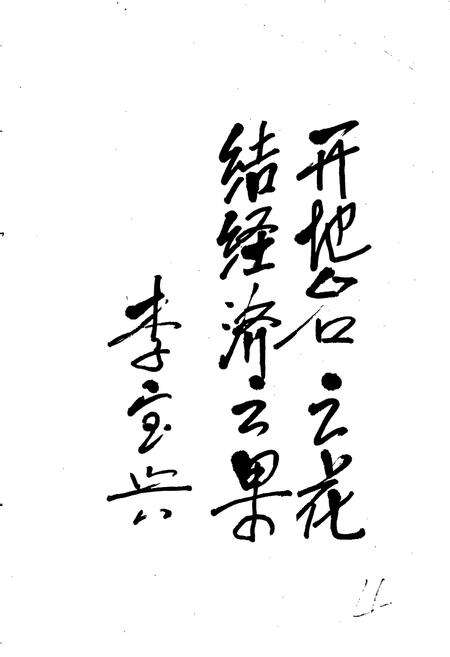 开地名之花
结经济之果
李宝兴